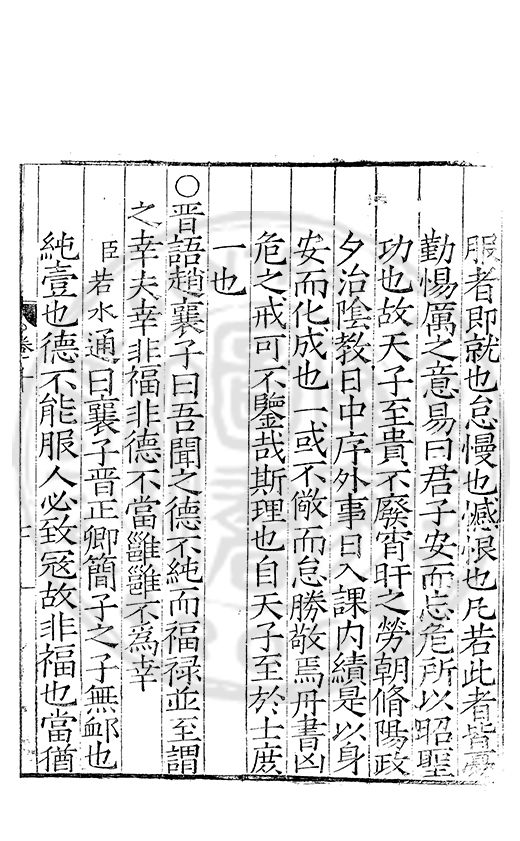 服者即就也怠慢也憾恨也凡若此者皆憂
勤惕厲之意易曰君子安而忘危所以昭聖
功也故天子至貴不廢宵旰之勞朝脩陽政
夕治陰教日中序外事日入課内績是以身
安而化成也一或不儆而怠勝敬焉丹書凶
危之戒可不鑒哉斯理也自天子至於士庶
一也
○晋語趙襄子曰吾聞之德不純而福祿並至謂
之幸夫幸非福非德不當雝雝不爲幸
臣若水通曰襄子晋正卿簡子之子無卹也
純壹也德不能服人必致寇故非福也當猶